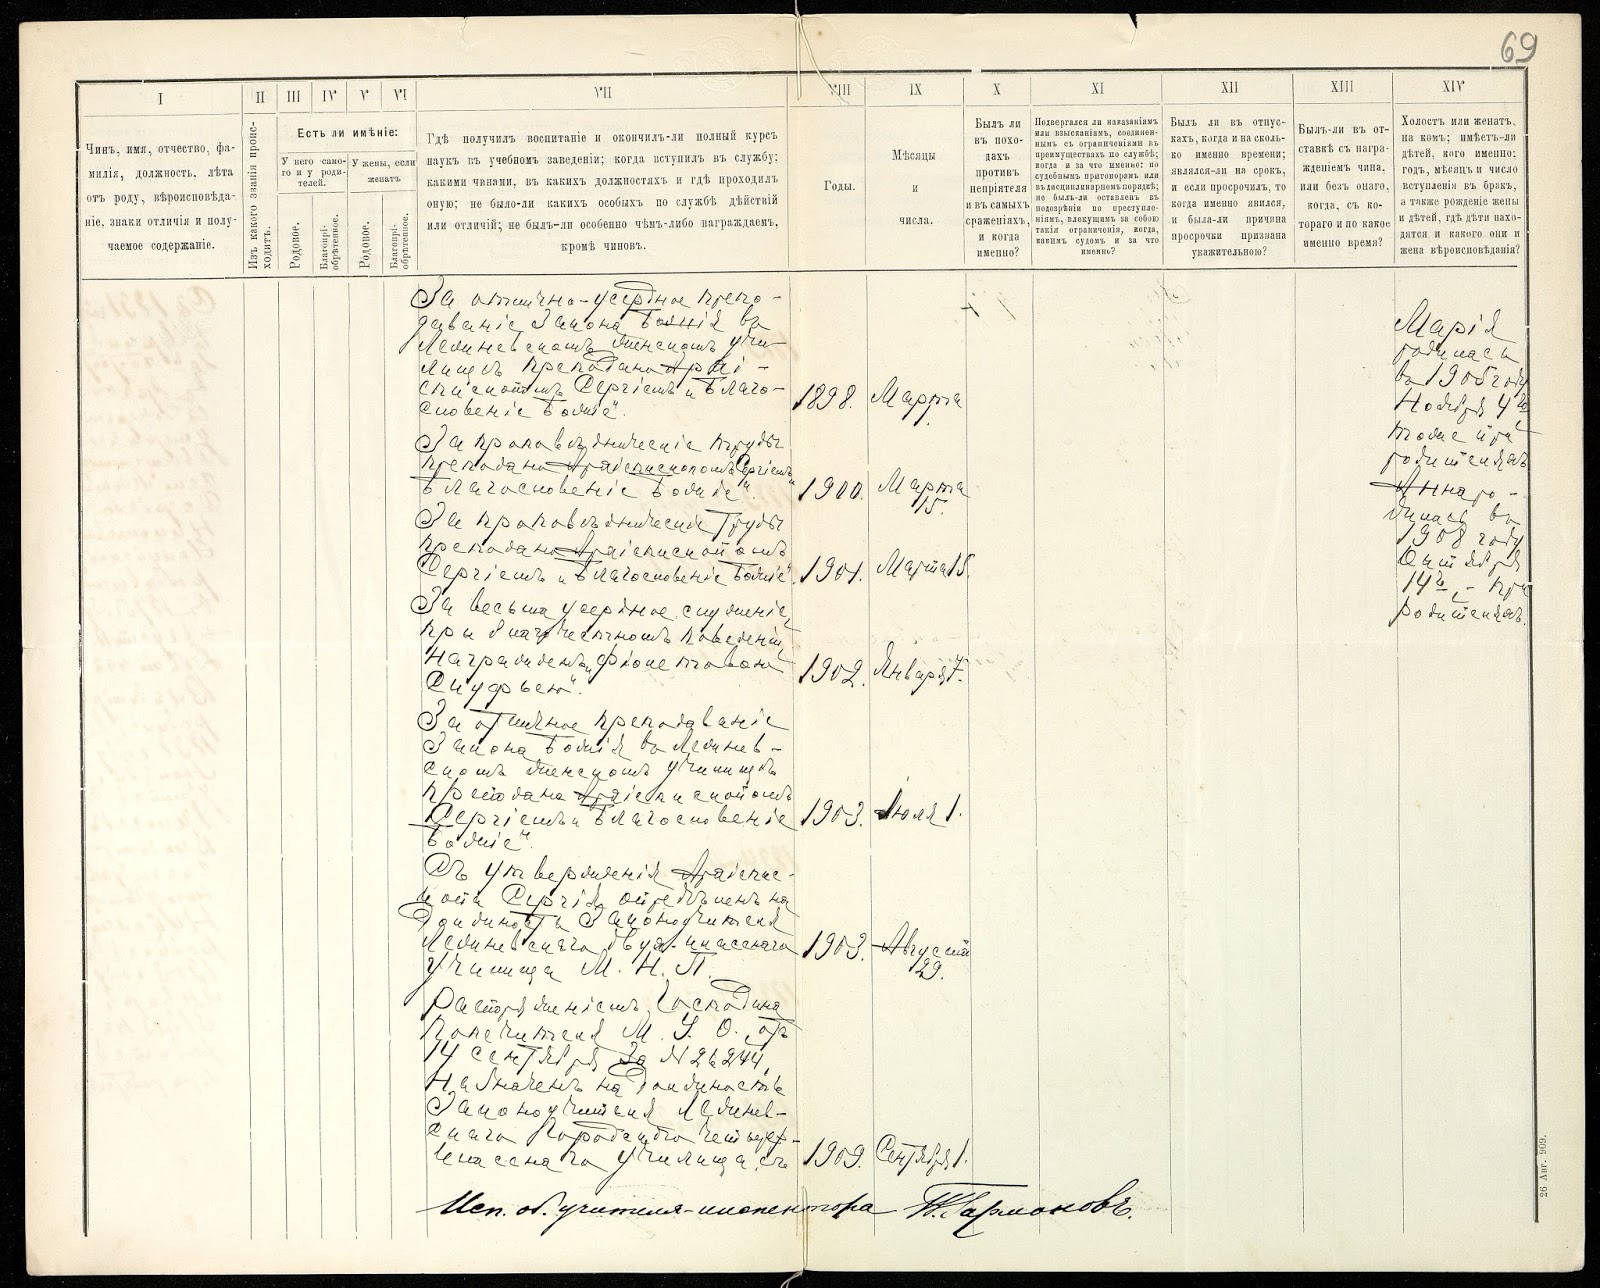 69
I
II
III
IV
V
VI
VII
VIII
IX
X
XI
XII
XIII
XIV
Чинъ, имя, отчество, фа-
милія, должность, лѣта
отъ роду, вѣроисповѣда-
ніе, знаки отличія и полу-
чаемое содержаніе.
Изъ какого званія проис-
ходитъ.
Есть ли имѣніе:
У него само-
го и у роди-
телей.
У жены, если
женатъ
Родовое.
Благопрі-
обрѣтенное.
Родовое.
Благопрі-
обрѣтенное.
Гдѣ получилъ воспитаніе и окончилъ-ли полный курсъ
наукъ въ учебномъ заведеніи; когда вступилъ въ службу;
какими чинами, въ какихъ должностяхъ и гдѣ проходилъ
оную; не было-ли какихъ особыхъ по службѣ дѣйствій
или отличій; не былъ-ли особенно чѣмъ-либо награждаемъ,
кромѣ чиновъ.
Годы.
Мѣсяцы
и
числа.
Былъ ли
въ похо-
дахъ
противъ
непріятеля
и въ самыхъ
сраженіяхъ,
и когда
именно?
Подвергался ли наказаніямъ
или взысканіямъ, соединен-
нымъ съ ограниченіями въ
преимуществахъ по службѣ;
когда и за что именно: по
судебнымъ приговорамъ или
въ дисциплинарномъ порядкѣ;
не былъ-ли оставленъ въ
подозрѣніи по преступле-
ніямъ, влекущимъ за собою
такія ограниченія, когда,
какимъ судомъ и за что
именно?
Былъ ли въ отпус-
кахъ, когда и на сколь-
ко именно времени;
являлся-ли на срокъ,
и если просрочилъ, то
когда именно явился,
и была-ли причина
просрочки признана
уважительною?
Былъ-ли въ от-
ставкѣ съ награ-
жденіемъ чина,
или безъ онаго,
когда, съ ко-
тораго и по какое
именно время?
Холостъ или женатъ,
на комъ; имѣетъ-ли
дѣтей, кого именно;
годъ, мѣсяцъ и число
вступленія въ бракъ,
а также рожденіе жены
и дѣтей, гдѣ дѣти нахо-
дятся и какого они и
жена вѣроисповѣданія?
За отлично-усердное препо-
даваніе Закона Божія въ
женскомъ учи-
лищѣ преподано Архі-
епископомъ Сергіемъ „Благо-
словеніе Божіе".
1898. Марта
За проповѣдническіе труды
преподано Архіепископомъ Сергіемъ
„Благословеніе Божіе".
1900. Марта
15.
За проповѣдническіе труды
преподано Архіепископомъ
Сергіемъ „Благословеніе Божіе".
1901. Марта 15.
За весьма усердное служеніе
при благочестномъ поведеніи
награжденъ „фіолетовою
скуфьею".
1902. Января 7.
За отличное преподаваніе
Закона Божія въ
женскомъ училищѣ
преподано Архіепископомъ
Сергіемъ „Благословеніе
Божіе".
1903. Іюля 1.
Съ утвержденія Архіепис-
копа Сергія опредѣленъ на
должность Законоучителя
двухъ-класснаго
училища М. Н. П.
1903. Августа
29.
Распоряженіемъ Господина
Попечителя М. У. О. отъ
14 сентября за № 26244,
назначенъ на должность
Законоучителя
Городского четырех-
класснаго училища, съ
1909. Сентября 1.
Исп. об. учителя-инспектора
Марія
родилась
въ 1905 году
Ноября 4го
тоже при
родителяхъ
Анна ро-
дилась въ
1908 году
Октября
14го, – при
родителяхъ.
26 Авг. 909.